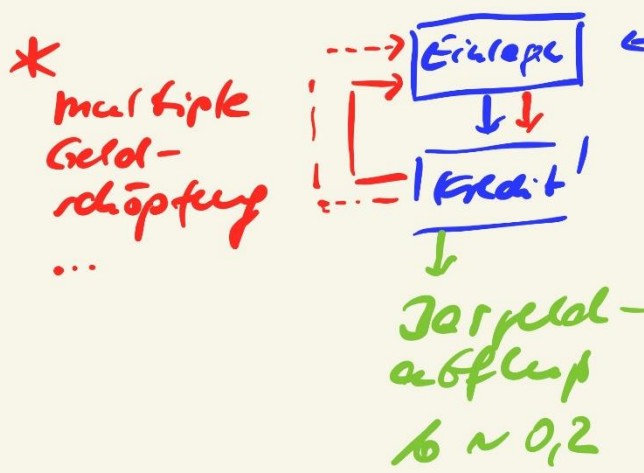 *
multiple
Geld-
schöpfung
...
Einlage
Kredit
Bargeld-
abfluss
b ~ 0,2